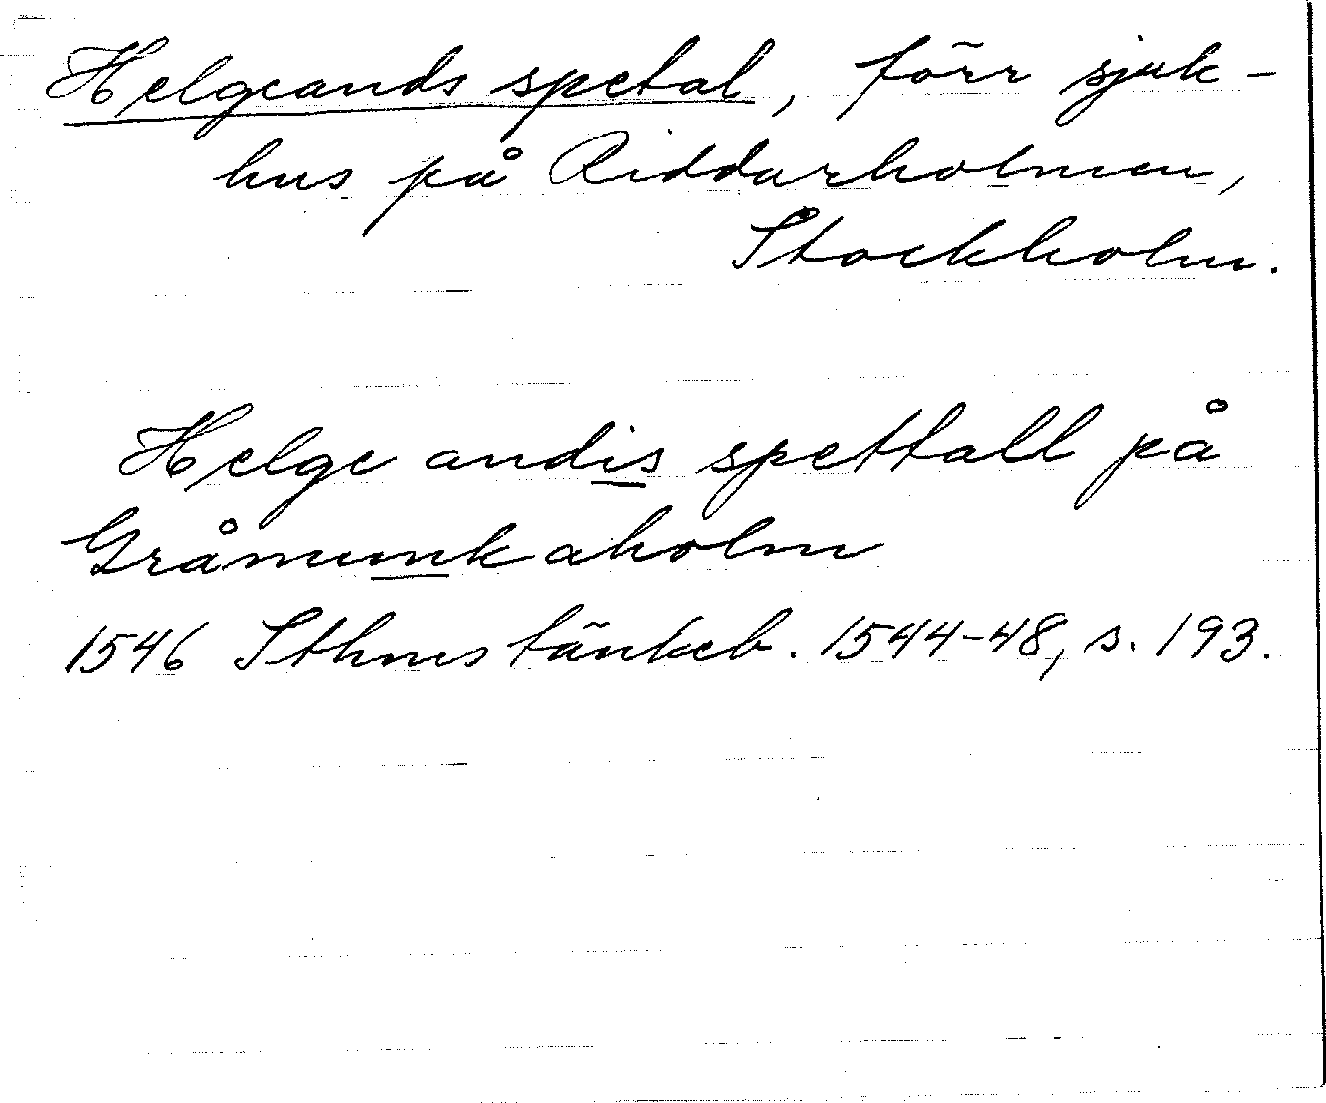 Helgeands spetal, förr sjuk-
hus på Riddarholmen,
Stockholm.
Helge andis spettall på
Gråmunkaholm
1546 Sthms tänkeb. 1544-48, s. 193.